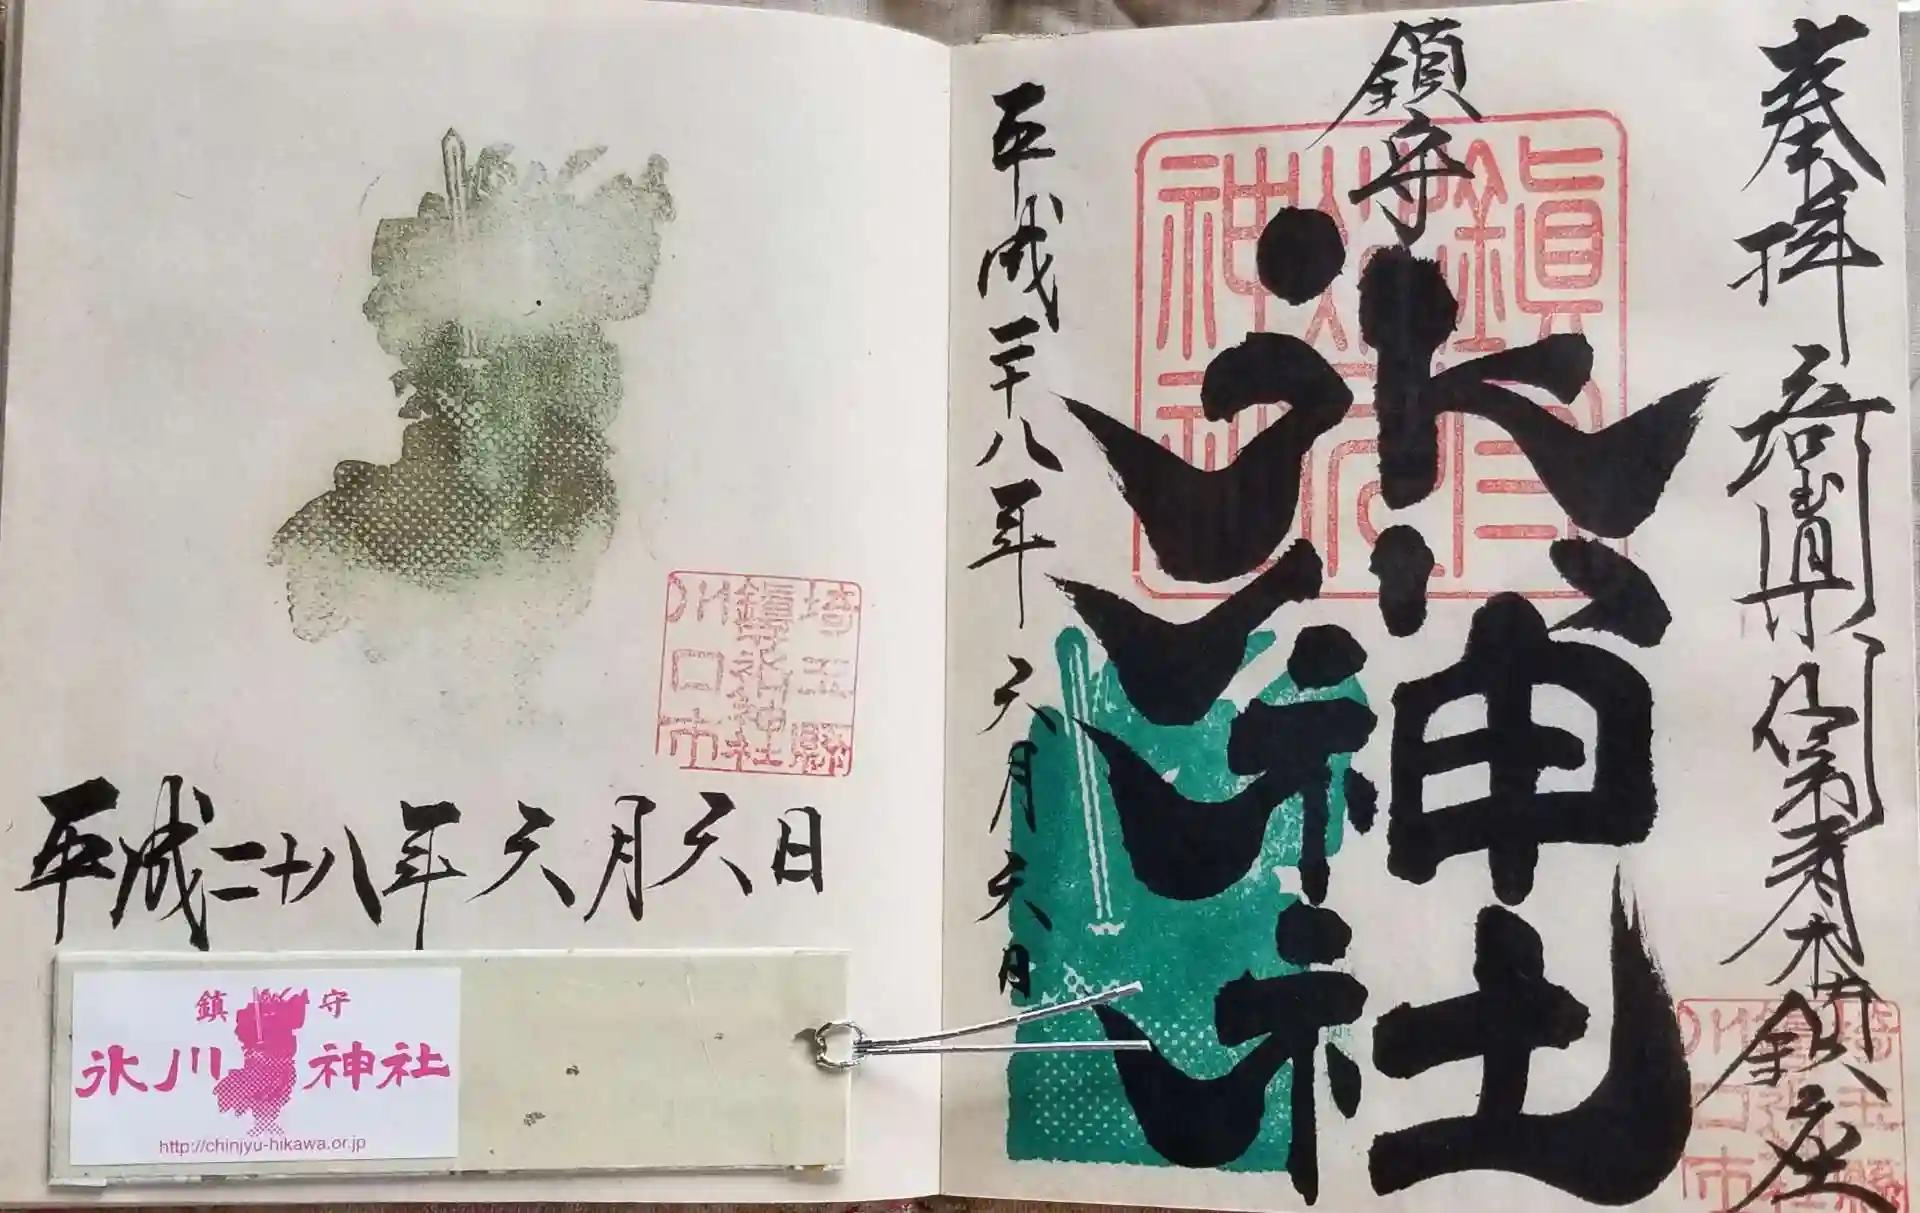 奉拝 埼玉県 青木鎮座
鎮守
氷川神社
平成二十八年六月六日
鎮守氷川神社
埼玉縣
鎮守氷川神社
川口市
平成二十八年六月六日
埼玉縣
鎮守氷川神社
川口市
鎮守
氷川神社
http://chinjyu-hikawa.or.jp